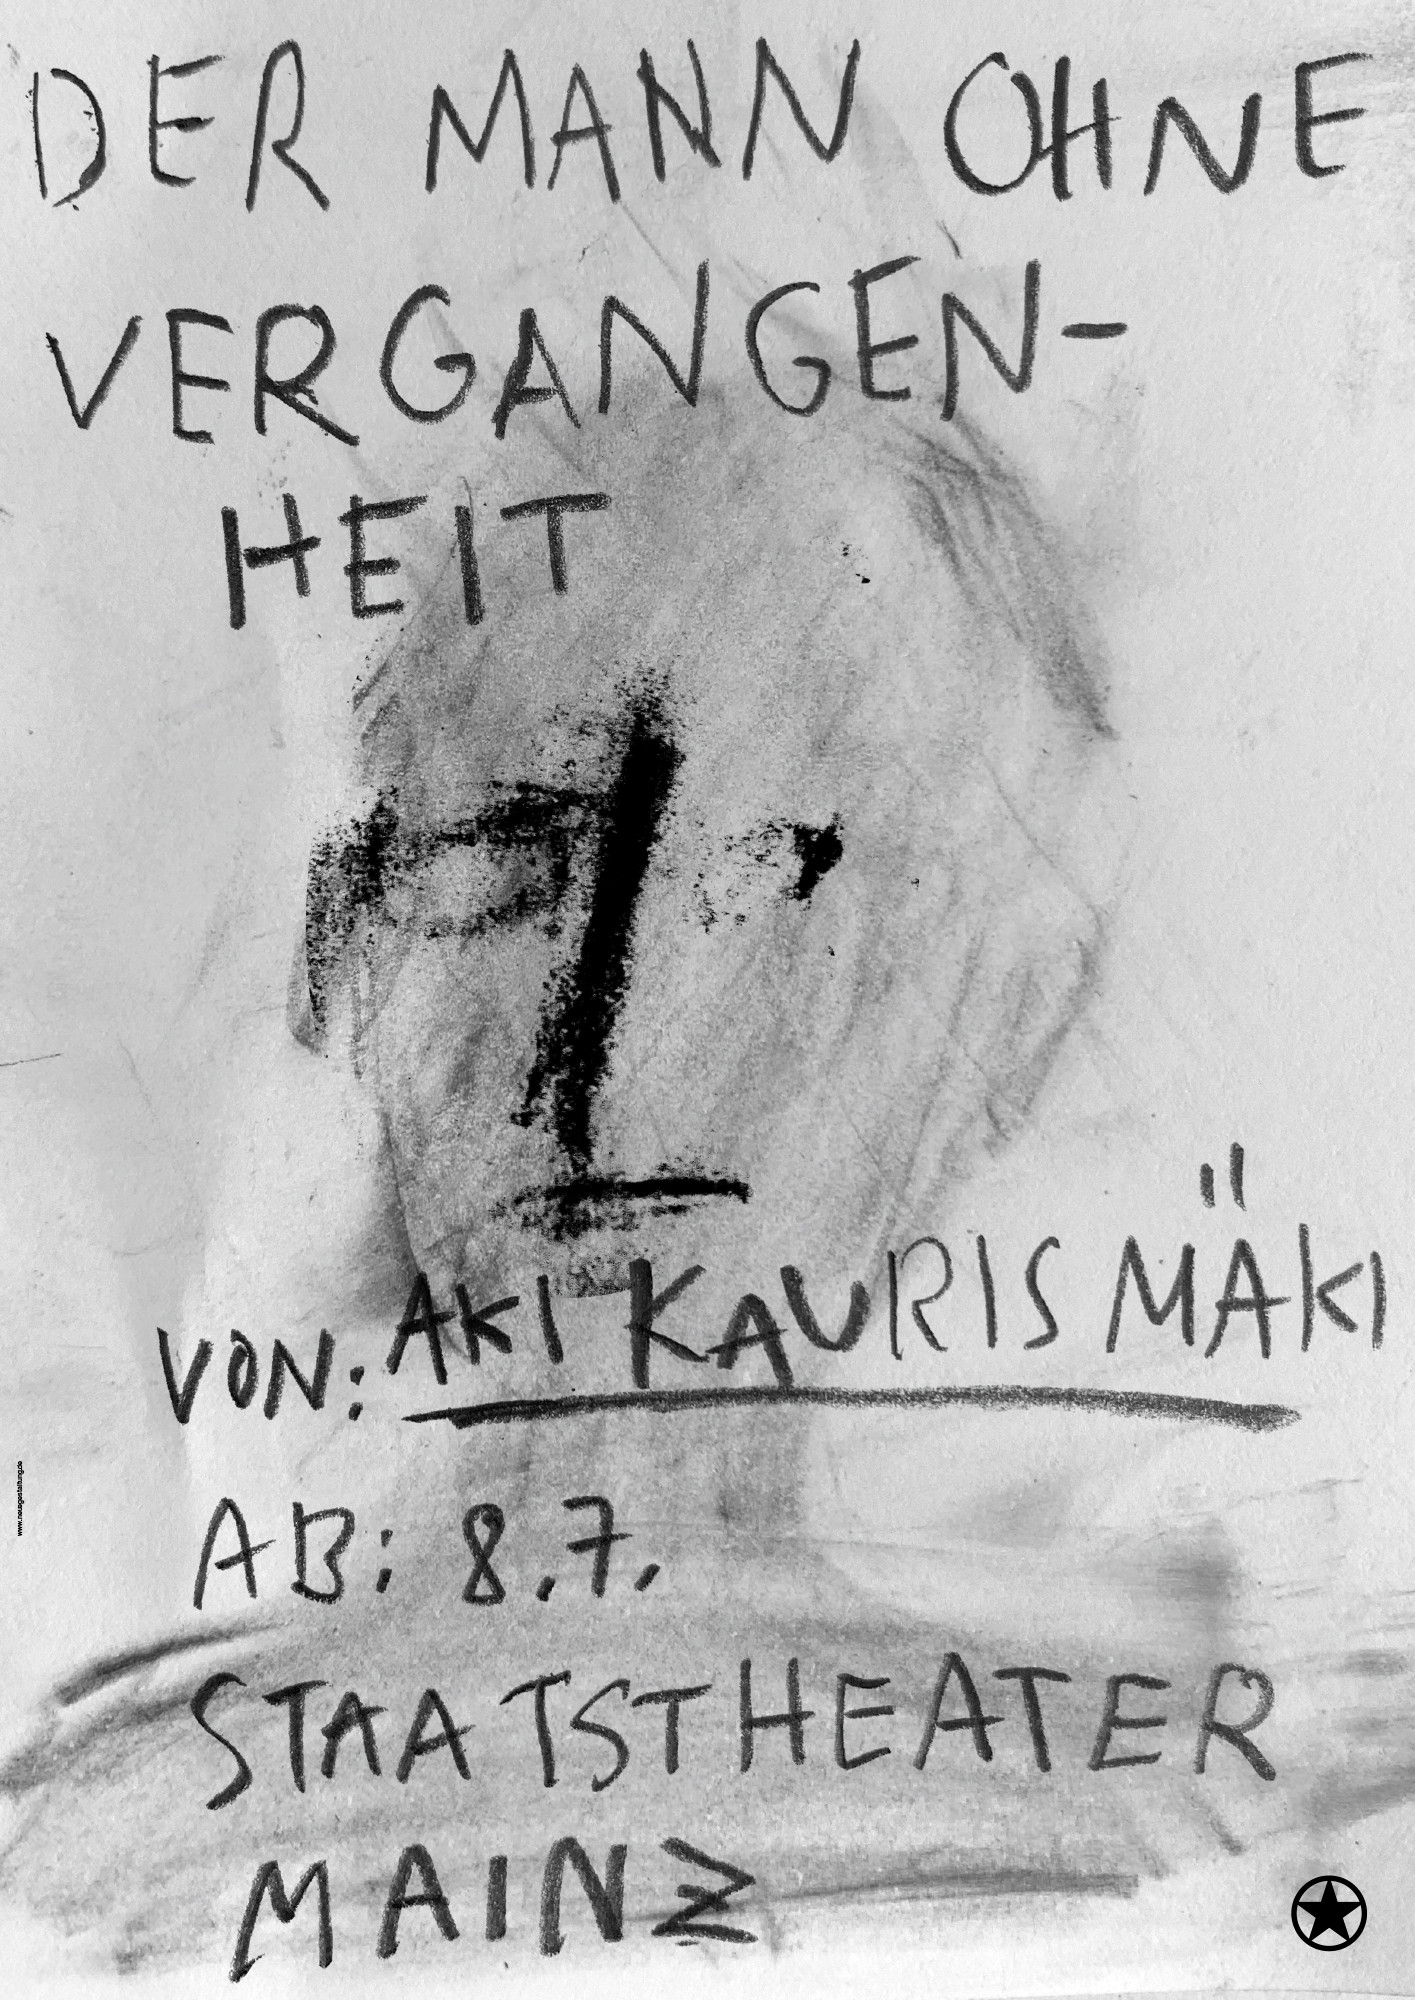 DER MANN OHNE
VERGANGEN-
HEIT
VON: AKI KAURISMÄKI
AB: 8.7.
STAATSTHEATER
MAINZ
www.neuegestaltung.de